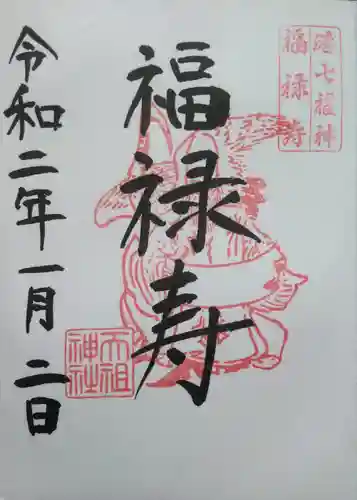 港七福神
福禄寿
福禄寿
令和二年一月二日
天祖
神社